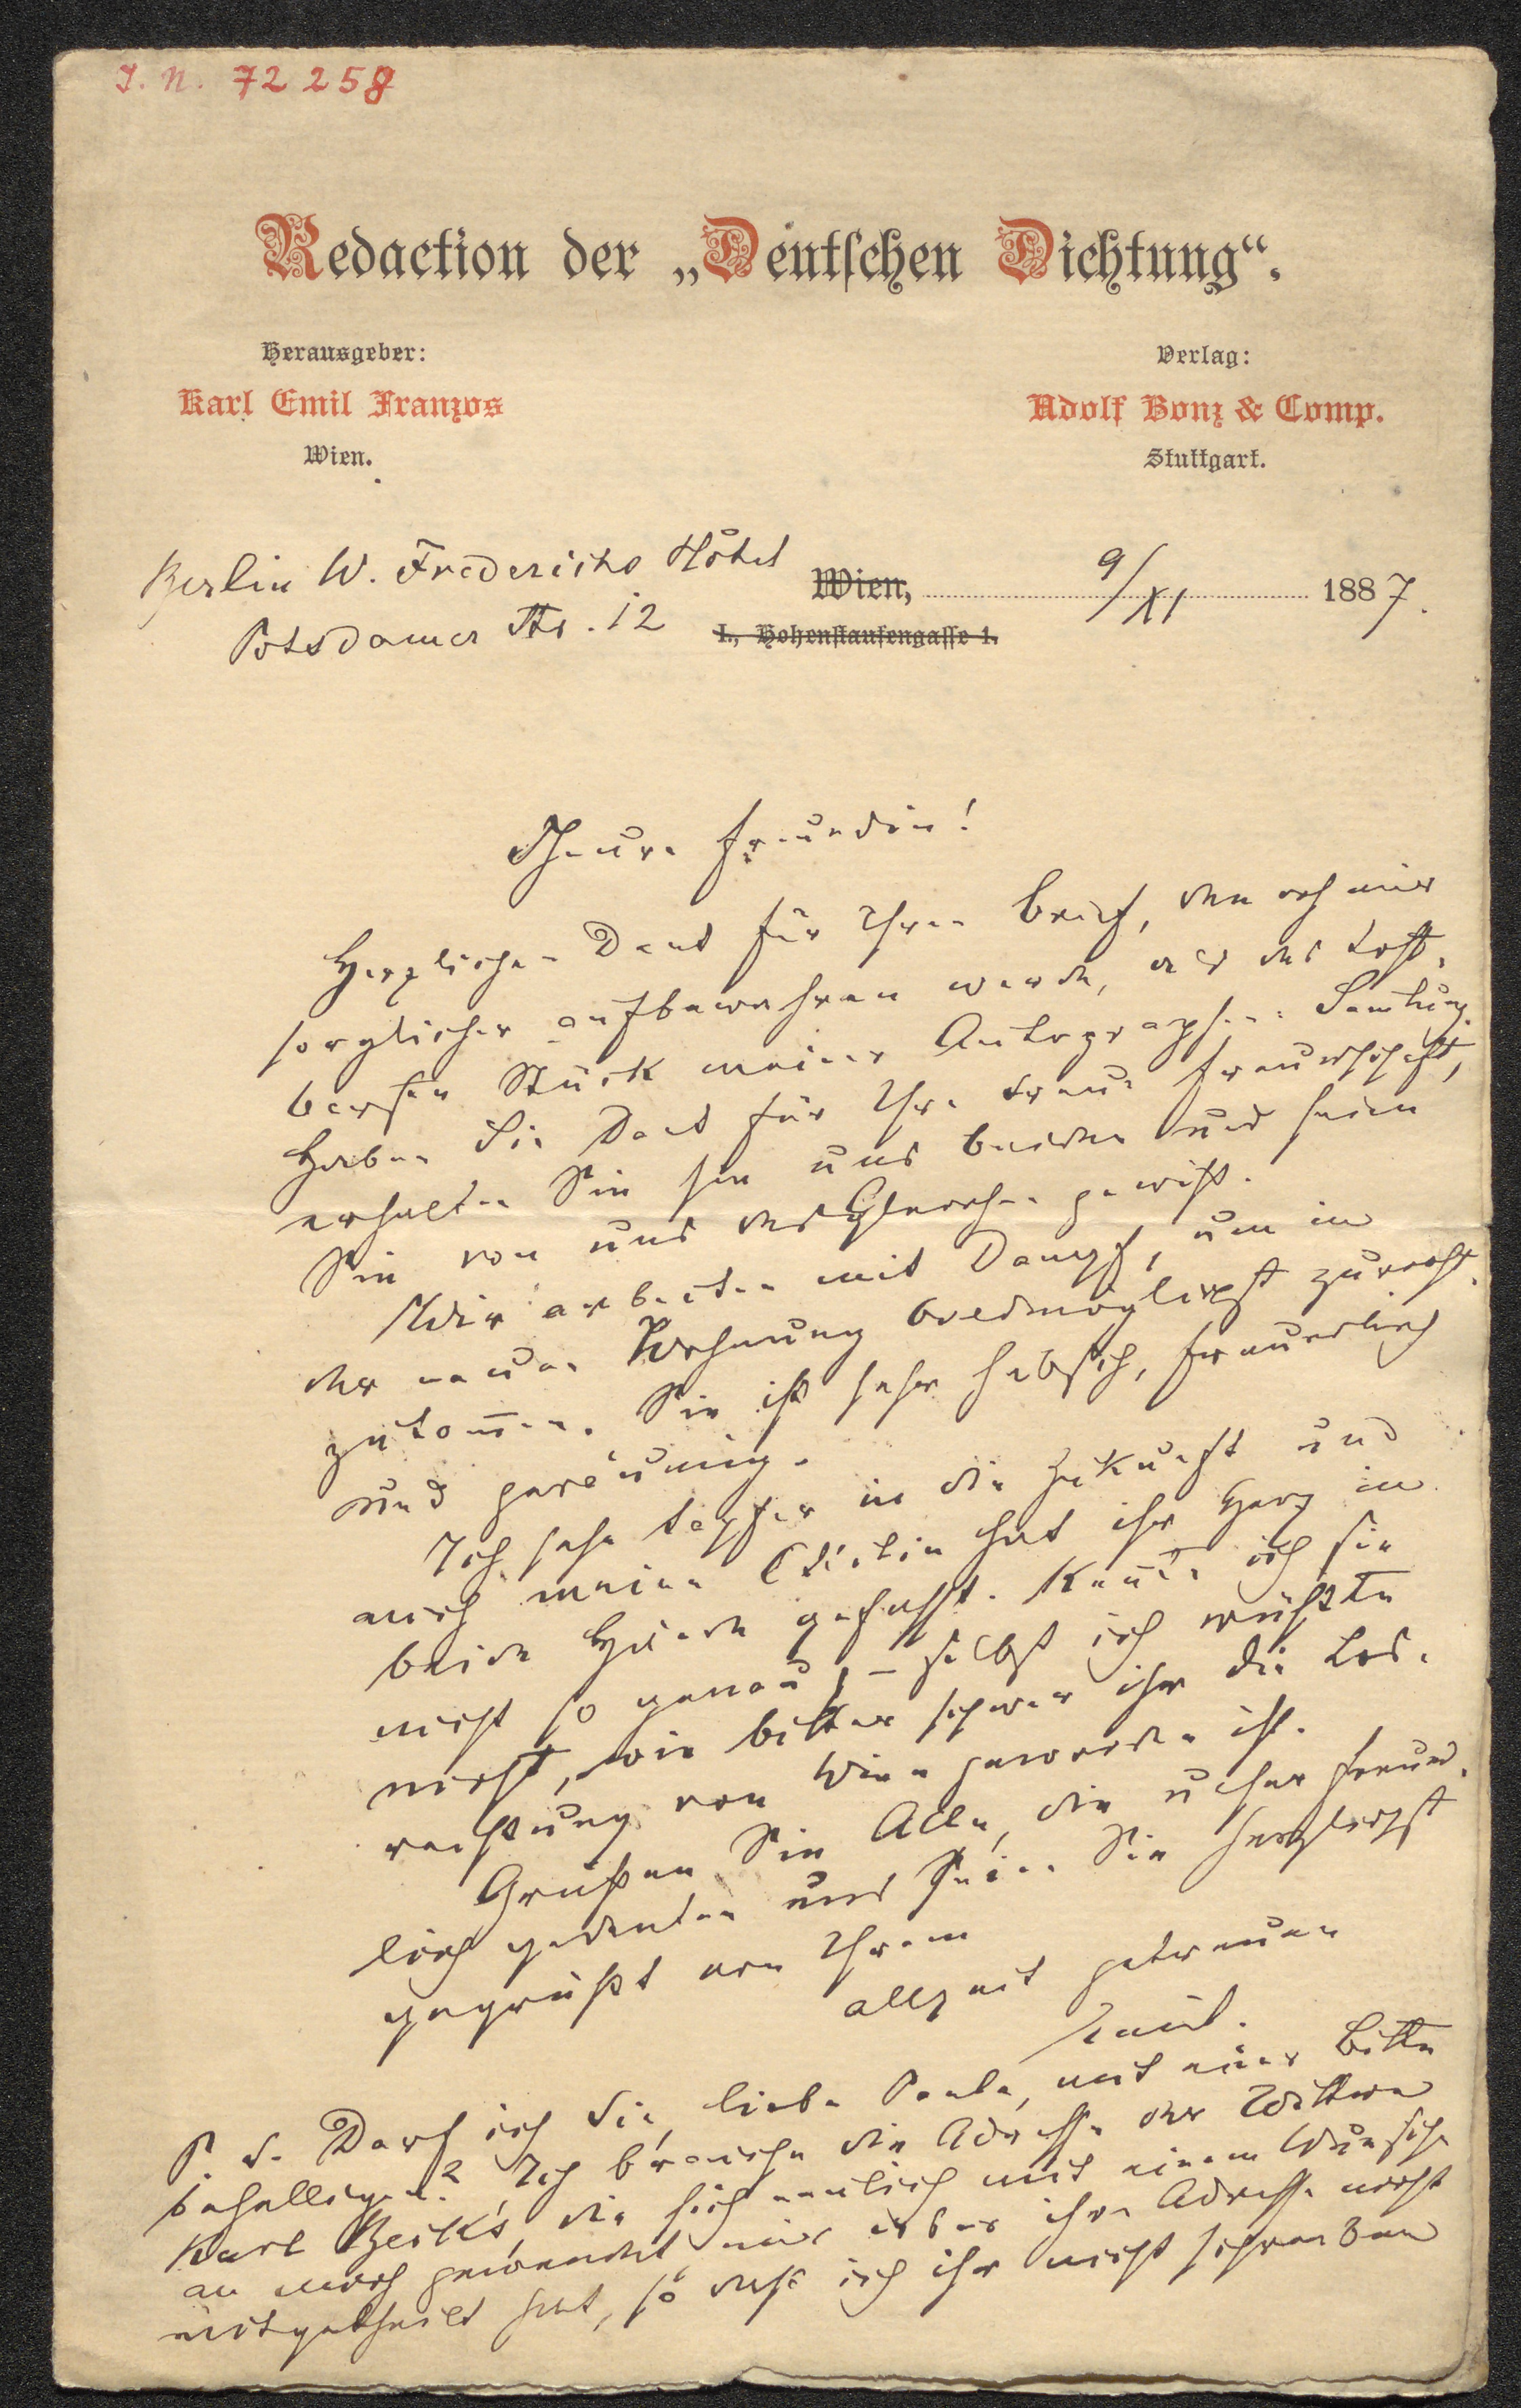 I. N. 72 258
Redaction der „Deutschen Dichtung“.
Herausgeber:
Karl Emil Franzos
Wien.
Verlag:
Adolf Bonz & Comp.
Stuttgart.
Berlin W. Frederichs Hôtel
Potsdamer Str. 12
Wien, 9/XI 1887.
I., Hohenstaufengasse 1.
Theure Freundin!
Herzlichen Dank für Ihren Brief, den ich mir
sorglicher aufbewahren werde, als das kost-
barste Stück meiner Autographen-Samlung.
Haben Sie Dank für Ihre treue Freundschaft,
erhalten Sie sie uns beiden und seien
Sie von uns desgleichen gewiß.
Wir arbeiten mit Dampf, um in
der neuen Wohnung baldmöglichst zurecht-
zukom̅en. Sie ist sehr hübsch, freundlich
und geräumig.
Ich sehe tapfer in die Zukunft und
auch meine Ottilie hat ihr Herz in
beide Hände gefaßt. Kennte ich sie
nicht so genau, – selbst ich wüßte
nicht, wie bitter schwer ihr die Los-
reißung von Wien geworden ist.
Grüßen Sie Alle, die unser freund-
lich gedenken und seien Sie herzlichst
gegrüßt von Ihrem
allzeit getreuen
Emil.
P. S. Darf ich Sie, liebe Paula, mit einer Bitte
behelligen? Ich brauche die Adresse der Wittwe
Karl Beck's, die sich neulich mit einem Wunsche
an mich gewendet, mir aber ihre Adresse nicht
mitgetheilt hat, so daß ich ihr nicht schreiben